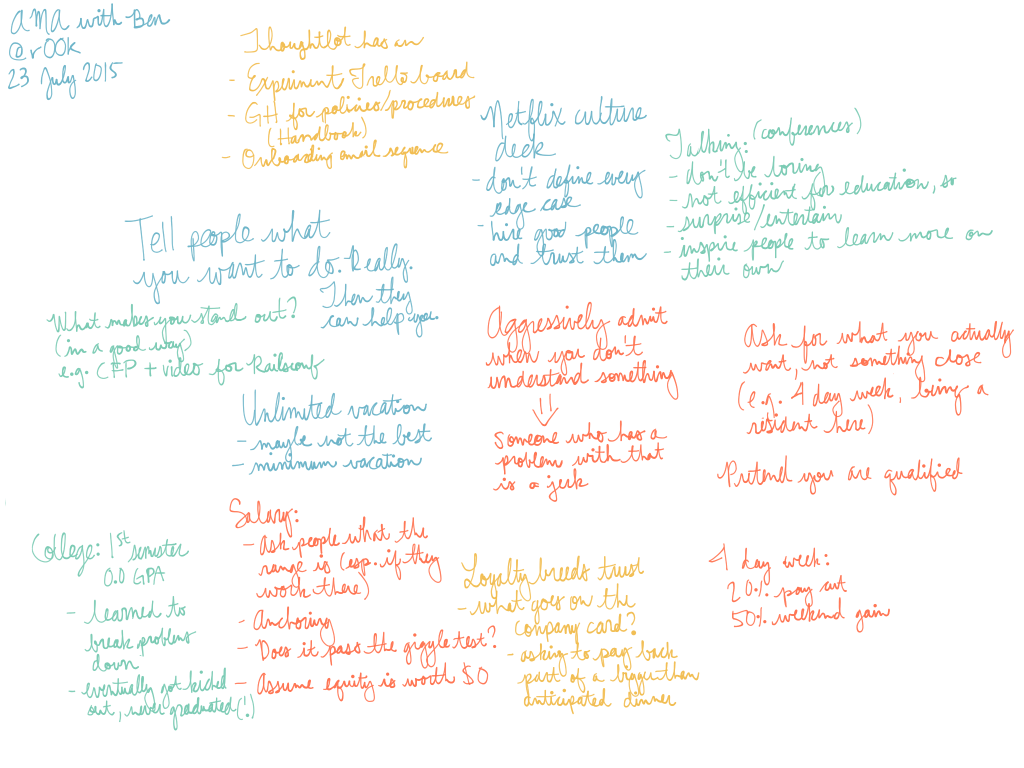 AMA with Ben
@r00k
23 July 2015
Thoughtbot has an
- Experiment Trello board
- GH for policies/procedures
(Handbook)
- Onboarding email sequence
Netflix culture
deck
- don't define every
edge case
- hire good people
and trust them
Talking: (conferences)
- don't be boring
- not efficient for education, so
- surprise/entertain
- inspire people to learn more on
their own
Tell people what
you want to do. Really.
Then they
can help you.
What makes you stand out?
(in a good way)
e.g. CFP + video for Railsconf
Unlimited vacation
- maybe not the best
- minimum vacation
Aggressively admit
when you don't
understand something
Someone who has a
problem with that
is a jerk
Ask for what you actually
want, not something close
(e.g. 4 day week, being a
resident here)
Pretend you are qualified
College: 1st semester
0.0 GPA
- learned to
break problems
down
- eventually got kicked
out, never graduated(!)
Salary:
- Ask people what the
range is (esp. if they
work there)
- Anchoring
- Does it pass the giggle test?
- Assume equity is worth $0
Loyalty breeds trust
- what goes on the
company card?
- asking to pay back
part of a bigger than
anticipated dinner
4 day week:
20% pay cut
50% weekend gain